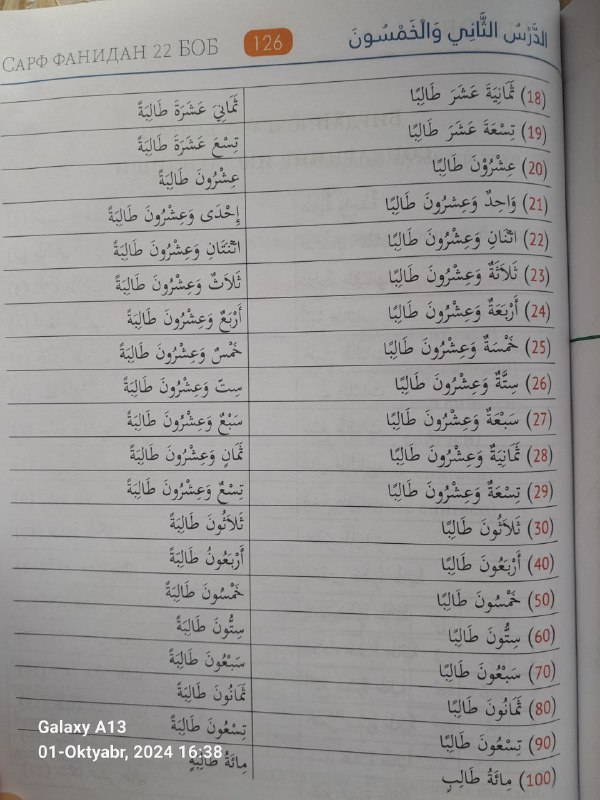 САРФ ФАНИДАН 22 БОБ 126 الدَّرْسُ الثَّانِي وَالْخَمْسُونَ
(18) ثَمَانِيَةَ عَشَرَ طَالِبًا ثَمَانِيَ عَشَرَةَ طَالِبَةً
(19) تِسْعَةَ عَشَرَ طَالِبًا تِسْعَ عَشَرَةَ طَالِبَةً
(20) عِشْرُوْنَ طَالِبًا عِشْرُونَ طَالِبَةً
(21) وَاحِدٌ وَعِشْرُونَ طَالِبًا إِحْدَى وَعِشْرُونَ طَالِبَةً
(22) اثْنَانِ وَعِشْرُونَ طَالِبًا اثْنَتَانِ وَعِشْرُونَ طَالِبَةً
(23) ثَلَاثَةٌ وَعِشْرُونَ طَالِبًا ثَلَاثٌ وَعِشْرُونَ طَالِبَةً
(24) أَرْبَعَةٌ وَعِشْرُونَ طَالِبًا أَرْبَعٌ وَعِشْرُونَ طَالِبَةً
(25) خَمْسَةٌ وَعِشْرُونَ طَالِبًا خَمْسٌ وَعِشْرُونَ طَالِبَةً
(26) سِتَّةٌ وَعِشْرُونَ طَالِبًا سِتٌّ وَعِشْرُونَ طَالِبَةً
(27) سَبْعَةٌ وَعِشْرُونَ طَالِبًا سَبْعٌ وَعِشْرُونَ طَالِبَةً
(28) ثَمَانِيَةٌ وَعِشْرُونَ طَالِبًا ثَمَانٍ وَعِشْرُونَ طَالِبَةً
(29) تِسْعَةٌ وَعِشْرُونَ طَالِبًا تِسْعٌ وَعِشْرُونَ طَالِبَةً
(30) ثَلَاثُونَ طَالِبًا ثَلَاثُونَ طَالِبَةً
(40) أَرْبَعُونَ طَالِبًا أَرْبَعُونُ طَالِبَةً
(50) خَمْسُونَ طَالِبًا خَمْسُونَ طَالِبَةً
(60) سِتُّونَ طَالِبًا سِتُّونَ طَالِبَةً
(70) سَبْعُونَ طَالِبًا سَبْعُونَ طَالِبَةً
(80) ثَمَانُونَ طَالِبًا ثَمَانُونَ طَالِبَةً
(90) تِسْعُونَ طَالِبًا تِسْعُونَ طَالِبَةً
(100) مِائَةُ طَالِبٍ مِائَةُ طَالِبَةٍ
Galaxy A13
01-Oktyabr, 2024 16:38